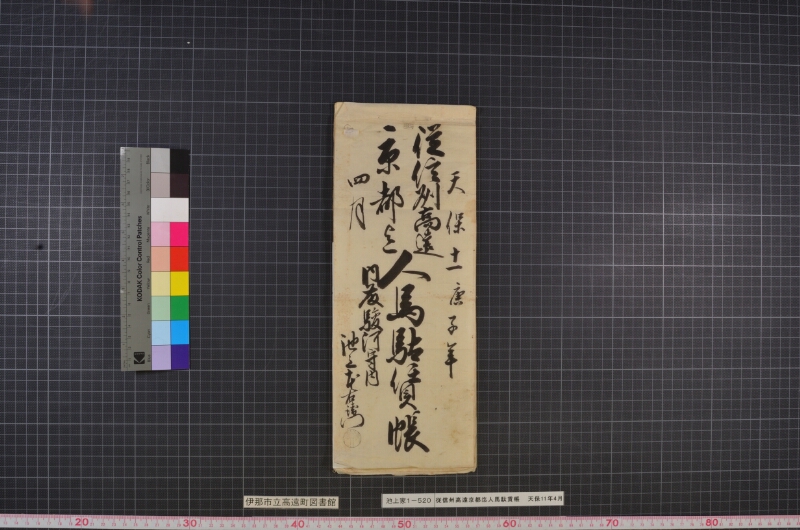 天保十一庚子年
従信州高遠
京都迄
人馬駄賃帳
四月
内藤駿河守内
KODAK Color Control Patches
KODAK
伊那市立高遠町図書館
池上家1-520 従信州高遠京都迄人馬駄賃帳 天保11年4月
20
30
40
50
60
70
80